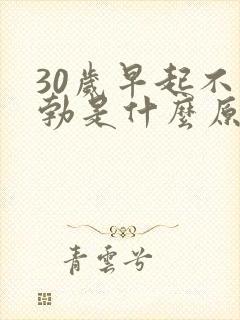 30歲早起不
勃是什麼原
青雲兮